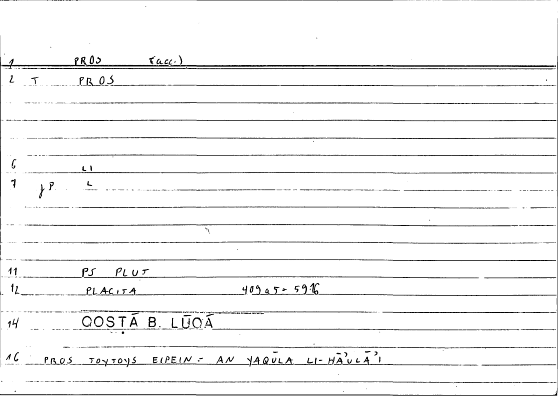 1 PROS (acc.)
2 T PROS
6 LI
7 P. L
11 PS PLUT
12 PLACITA 409 a 5 -
14 QOSṬĀ B. LŪQĀ
16 PROS TOYTOYS EIPEIN = AN YAQŪLA LI-HĀ'ULĀ'I